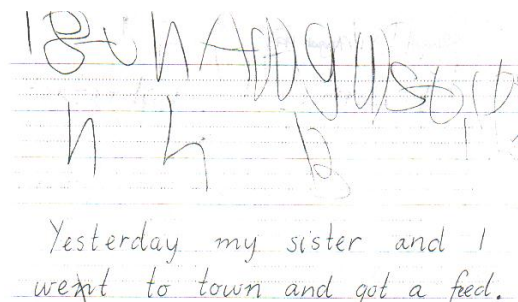 18th August
h h b
Yesterday my sister and I
went to town and got a feed.